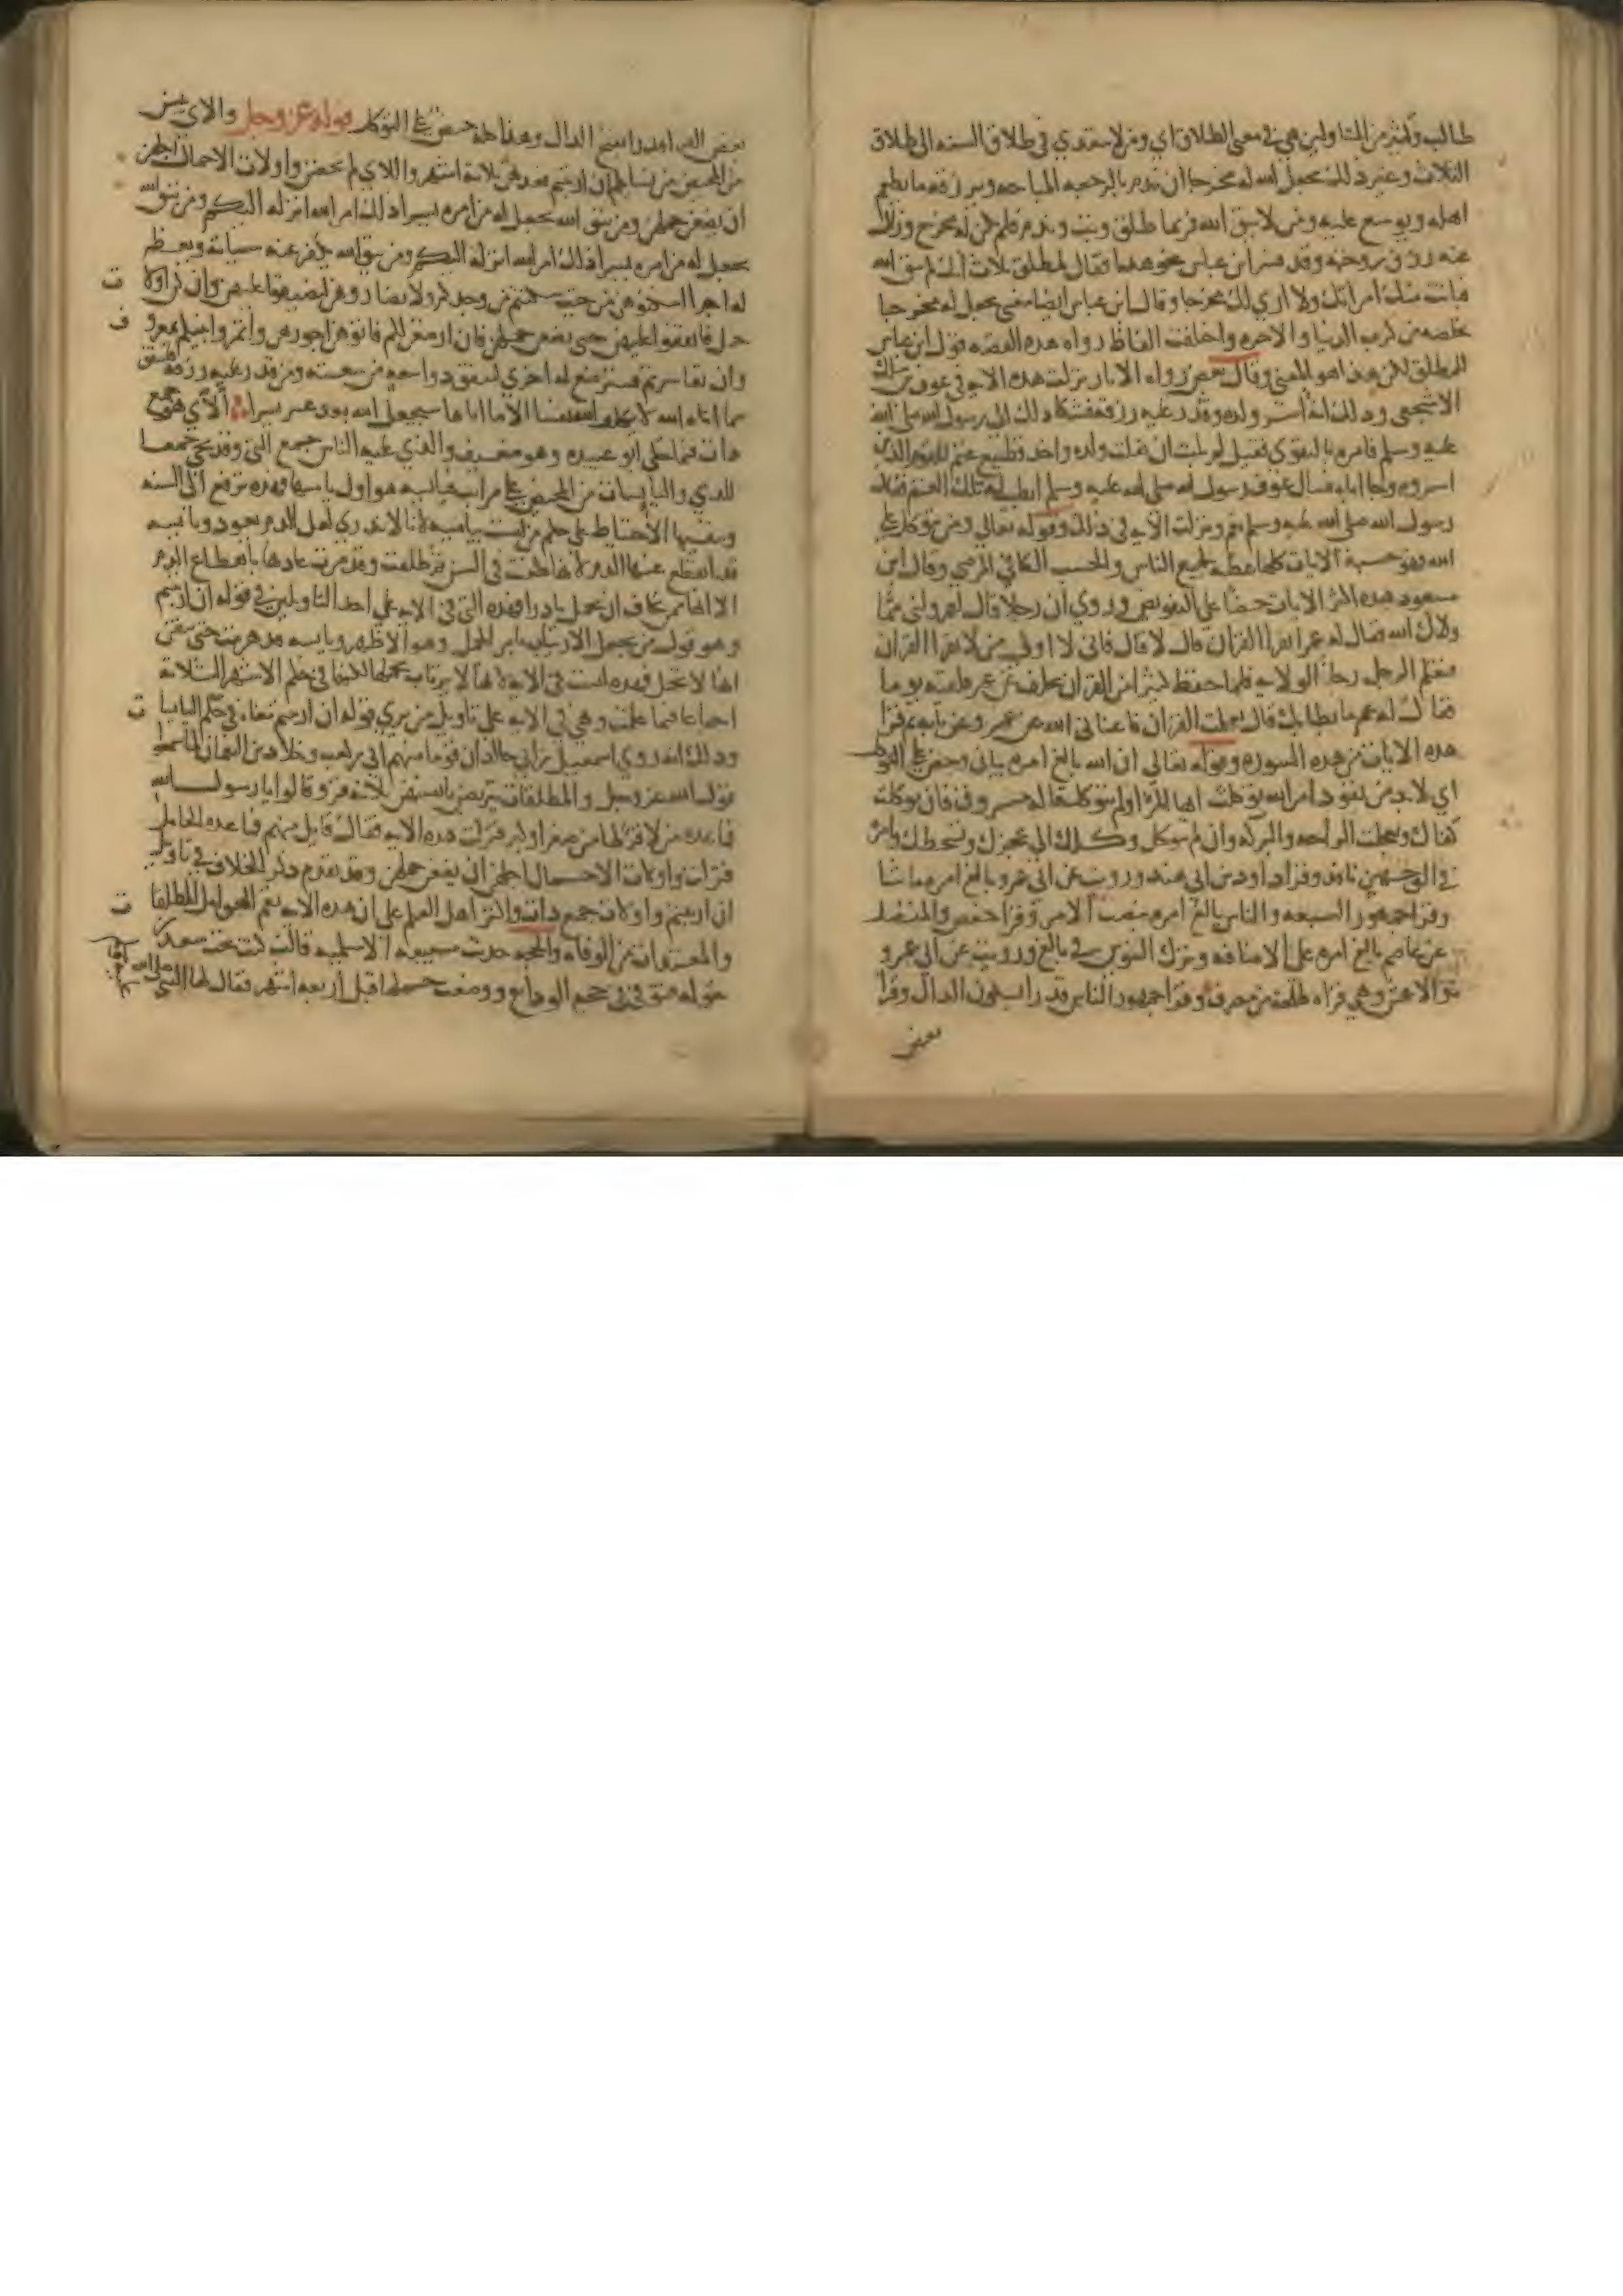 طالب وكثير من المتاولين هي في معنى الطلاق اي ومن لا يتعدي في طلاق السنه الى طلاق
الثلاث وغير ذلك يجعل الله له مخرجا ان ندم بالرجعه المباحه ويرزقه ما يطعم
اهله ويوسع عليه ومن لا يتق الله فربما طلق وبت وندم فلم يكن له مخرج وزال
عنه رزق زوجته وقد فسر ابن عباس نحو هذا فقال لمطلق ثلاث انك لم تتق الله
بانت منك امراتك ولا اري لك مخرجا وقال ابن عباس ايضا معنى يجعل له مخرجا
يخلصه من كرب الدنيا والاخره واختلفت الفاظ رواه هذه القصه قول ابن عباس
للمطلق لكن هذا هو المعنى وقال بعض رواه الاثار نزلت هذه الايه في عوف بن مالك
الاشجعي وذلك انه اسر ولده وقدر عليه رزقه فشكا ذلك الى رسول الله صلى الله
عليه وسلم فامره بالتقوى فقيل لم يلبث ان تفلت ولده واخذ قطيع غنم للقوم الذين
اسروه وجا اباه فسال عوف رسول الله صلى الله عليه وسلم ايطيب له تلك الغنم فقال
رسول الله صلى الله عليه وسلم نعم ونزلت الايه في ذلك وقوله تعالي ومن يتوكل على
الله فهو حسبه الايات كلها عظه لجميع الناس والحسب الكافي المرضي وقال ابن
مسعود هذه اكثر الايات حضا على التفويض وروي ان رجلا قال لعمر ولني مما
ولاك الله فقال له عمر اتقرا القران قال لا قال فاني لا اولي من لا يقرا القران
فتعلم الرجل رجا الولايه فلما حفظ كثيرا من القران تخلف عن عمر فلقيه يوما
فقال له عمر ما ابطا بك قال تعلمت القران فاغناني الله عن عمر وعن بابه ثم قرا
هذه الايات من هذه السوره وقوله تعالي ان الله بالغ امره بيان وحض على التوكل
اي لا بد من نفوذ امر الله توكلت ايها المرء او لم تتوكل قاله مسروق فان توكلت
كفاك وتعجلت الراحه والبركه وان لم تتوكل وكلك الى عجزك وتسخطك وامره
في الوجهين نافذ وقرا داود بن ابي هند ورويت عن ابي عمرو بالغ امره
وقرا جمهور السبعه والناس بالغ امره بنصب الامر وقرا حفص والمفضل
عن عاصم بالغ امره على الاضافه وترك التنوين في بالغ ورويت عن ابي عمرو
والاعمش وهي قراه طلحه بن مصرف وقرا جمهور الناس قدرا بسكون الدال وقرا
بعض
بعض القراء قدرا بفتح الدال وهذا كله حض على التوكل قوله عز وجل والاي يئسن
من المحيض من نسايكم ان ارتبتم فعدتهن ثلاثة اشهر واللاي لم يحضن واولات الاحمال اجلهن
ان يضعن حملهن ومن يتق الله يجعل له من امره يسرا ذلك امر الله انزله اليكم ومن يتق الله
يجعل له من امره يسرا ذلك امر الله انزله اليكم ومن يتق الله يكفر عنه سياته ويعظم
له اجرا اسكنوهن من حيث سكنتم من وجدكم ولا تضاروهن لتضيقوا عليهن وان كن اولات
حمل فانفقوا عليهن حتى يضعن حملهن فان ارضعن لكم فاتوهن اجورهن واتمروا بينكم بمعروف
وان تعاسرتم فسترضع له اخري لينفق ذو سعه من سعته ومن قدر عليه رزقه فلينفق
مما اتاه الله لا يكلف الله نفسا الا ما اتاها سيجعل الله بعد عسر يسرا اللاي هو جمع
ذات فيما حكى ابو عبيده وهو ضعيف والذي عليه الناس جمع التي وقد يجي جمعا
للذي واليايسات من المحيض على مراتب فيايسه هو اول ياسها فهذه ترفع الى السنه
ويبقيها الاحتياط على حكم من ليست بيايسه لانا لا ندري لعل الدم يعود ويايسه
قد انقطع عنها الدم لانها طعنت في السن ثم طلقت وقد مرت عادتها بانقطاع الدم
الا انها ممن يخاف ان تحمل نادرا فهذه التي في الايه على احد التاويلين في قوله ان ارتبتم
وهو قول من يجعل الارتياب بامر الحمل وهو الاظهر ويايسه قد هرمت حتى تتيقن
انها لا تحمل فهذه ليست في الايه لانها لا يرتاب بحملها لكنها في حكم الاشهر الثلاثه
اجماعا فيما علمت وهي في الايه على تاويل من يري قوله ان ارتبتم معناه في حكم اليايسات
وذلك انه روي اسمعيل بن ابي خالد ان قوما منهم ابي بن كعب وخلاد بن النعمان لما سمعوا
قول الله عز وجل والمطلقات يتربصن بانفسهن ثلاثه قرو قالوا يا رسول الله
فما عده من لا قرو لها من صغر او كبر فنزلت هذه الايه فقال قايل منهم فما عده الحامل
فنزلت واولات الاحمال اجلهن ان يضعن حملهن وقد تقدم ذكر الخلاف في تاويل
ان ارتبتم واولات جمع ذات واكثر اهل العلم على ان هذه الايه تعم الحوامل المطلقات
والمعتدات من الوفاه والحجه حديث سبيعه الاسلميه قالت كنت تحت سعد بن
خوله فتوفي في حجه الوداع ووضعت حملها قبل اربعه اشهر فقال لها النبي صلى الله